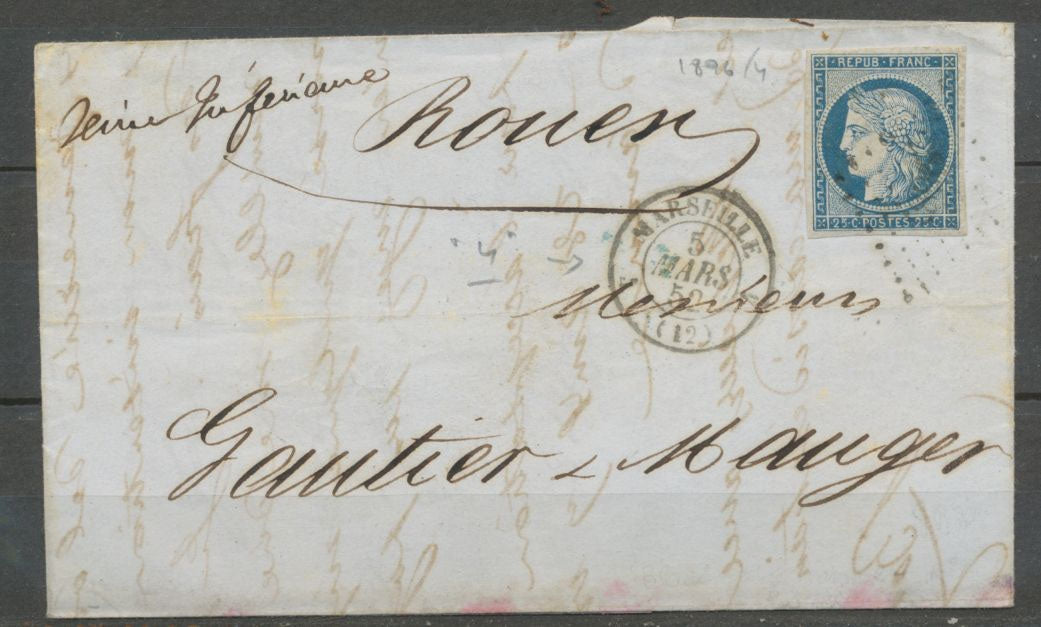 1896/4
REPUB · FRANC ·
25 · C · POSTES · 25 · C
Seine Inférieure
Rouen
MARSEILLE
5
MARS
(12)
"4"
Messieurs
Gautier & Mauger